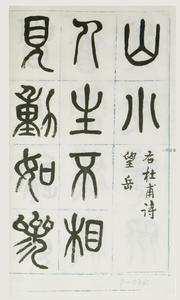 山小
右杜甫诗
望岳
人生不相
見動如參